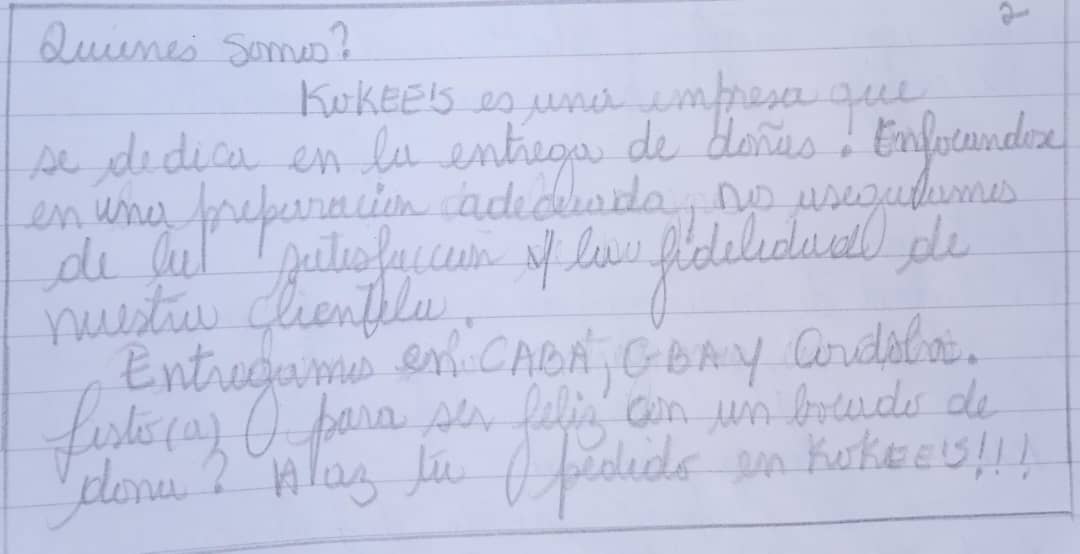 2
Quienes Somos?
KoKEE'S es una empresa que
se dedica en la entrega de doñas. Enfocandose
en una preparacion adecuada, nos aseguramos
de la satisfaccion y la fidelidad de
nuestra clientela.
Entregamos en CABA, GBA y Cordoba.
listo(a) para ser feliz con un bocado de
dona? Haz tu pedido en KoKEE'S!!!